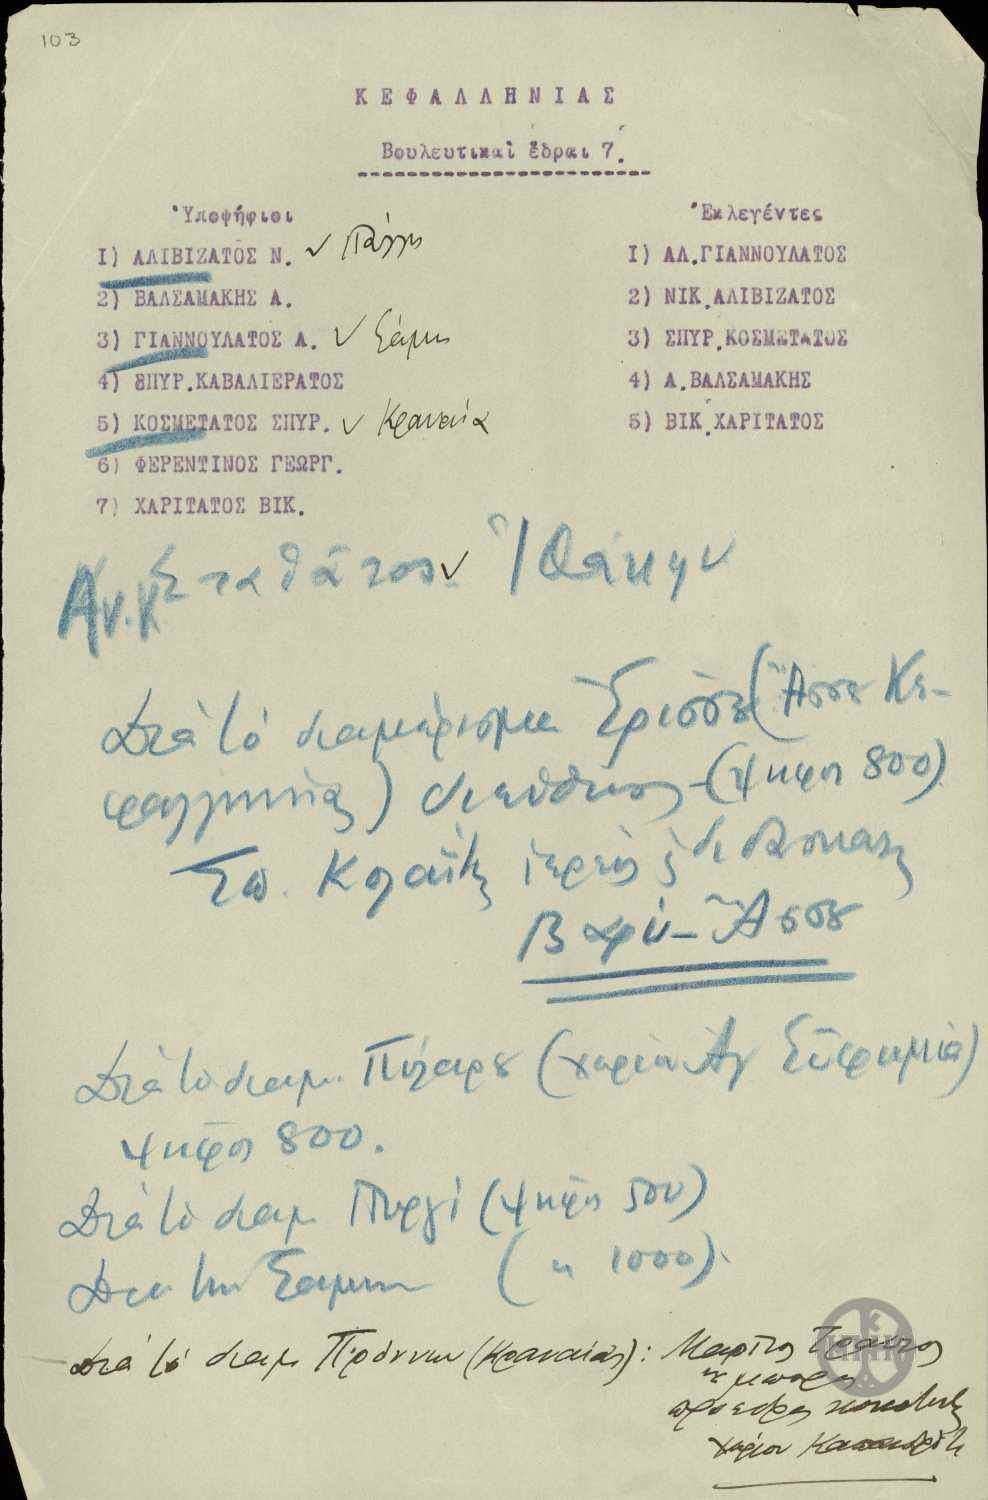 103
ΚΕΦΑΛΛΗΝΙΑΣ
Βουλευτικαὶ ἕδραι 7.
Ὑποψήφιοι
1) ΑΛΙΒΙΖΑΤΟΣ Ν. ν Πάλλη
2) ΒΑΛΣΑΜΑΚΗΣ Α.
3) ΓΙΑΝΝΟΥΛΑΤΟΣ Α. ν Σάμη
4) ΣΠΥΡ.ΚΑΒΑΛΙΕΡΑΤΟΣ
5) ΚΟΣΜΕΤΑΤΟΣ ΣΠΥΡ. ν Κραναία
6) ΦΕΡΕΝΤΙΝΟΣ ΓΕΩΡΓ.
7) ΧΑΡΙΤΑΤΟΣ ΒΙΚ.
Ἐκλεγέντες
1) ΑΛ.ΓΙΑΝΝΟΥΛΑΤΟΣ
2) ΝΙΚ.ΑΛΙΒΙΖΑΤΟΣ
3) ΣΠΥΡ.ΚΟΣΜΕΤΑΤΟΣ
4) Α.ΒΑΛΣΑΜΑΚΗΣ
5) ΒΙΚ.ΧΑΡΙΤΑΤΟΣ
Σταθᾶτος ν Ἰθάκην
Διὰ τὸ διαμέρισμα Ἐρίσσου (Ἄσσου Κε-
φαλληνίας) (ψῆφοι 800)
Σπ. ἱερεὺς
Ἄσσου
Διὰ τὸ διαμ. Πυλάρου (χωρίον Ἁγ Εὐφημία)
ψῆφοι 800.
Διὰ τὸ διαμ Πυργί (ψῆφοι 500)
Διὰ τὴν Σάμην ( " 1000).
Διὰ τὸ διαμ Πρόννων (Κραναίας):
πρόεδρος κοινότητος
χωρίον